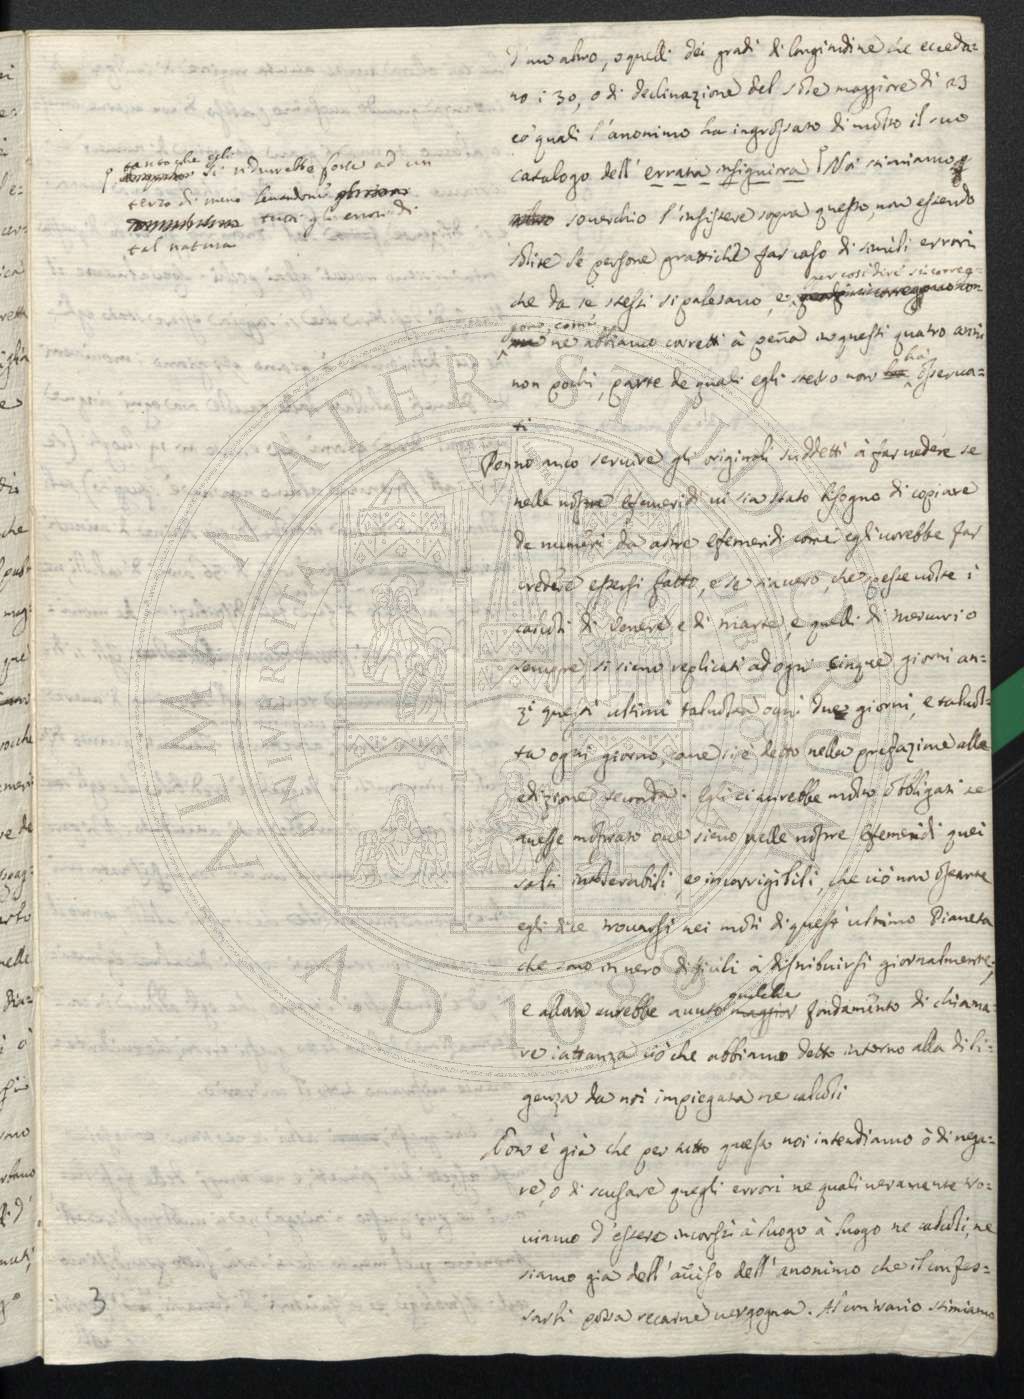 d'un altro, o quelli dei gradi di longitudine che ecceda=
no i 30, o di declinazione del sole maggiore di 23
co' quali l'anonimo ha ingrossato di molto il suo
catalogo dell' errata insigniora Noi stimiamo
soverchio l'insistere sopra questo, non essendo
solite le persone prattiche far caso di simili errori
che da se stessi si palesano, e per così dire si correg=
gono, come ne abbiamo corretti à pena in questi quatro anni
non pochi, parte de quali egli stesso non hà osserva=
ti
tanto che egli si ridurrebbe forse ad un
terzo di meno levandone
tutti gli errori di
tal natura
Ponno anco servire gli originali suddetti à far vedere se
nelle nostre efemeridi vi sia stato bisogno di copiare
de numeri da altre efemeridi come egli vorrebbe far
credere essersi fatto, e se sia vero, che spesse volte i
calcoli di Venere e di Marte, e quelli di Mercurio
sempre, si sieno replicati ad ogni cinque giorni an=
zi questi ultimi talvolta ogni due giorni, e talvol=
ta ogni giorno, come si è detto nella prefazione alla
edizione seconda. Egli ci avrebbe molto obbligati se
avesse mostrato ove sieno nelle nostre Efemeridi quei
salti intolerabili e incorrigibili, che ciò non ostante
egli dice trovarsi nei moti di quest' ultimo Pianeta
che sono in vero difficili à distribuirsi giornalmente,
e allora avrebbe avuto qualche fondamento di chiama=
re iattanza ciò che abbiamo detto intorno alla dili=
genza da noi impiegata ne calcoli
Non è già che per tutto questo noi intendiamo ò di nega=
re, o di scusare quegli errori ne quali veramente tro=
viamo d'essere incorsi à luogo à luogo ne calcoli, ne
siamo gia dell' aviso dell' anonimo che il confes=
sarli possa recarne vergogna. Al contrario stimiamo
3
ALMA MATER STUDIORUM
UNIVERSITÀ DI BOLOGNA
A.D. 1088